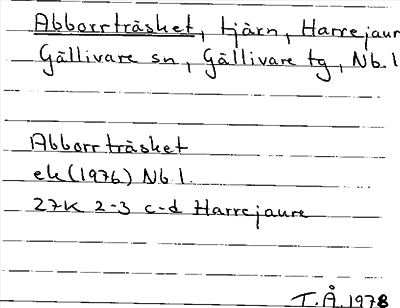 Abborrträsket, tjärn, Harrejaur
Gällivare sn, Gällivare tg, Nb. l
Abborrträsket
ek (1976) Nb l.
27K 2-3 c-d Harrejaure
T.Å. 1978